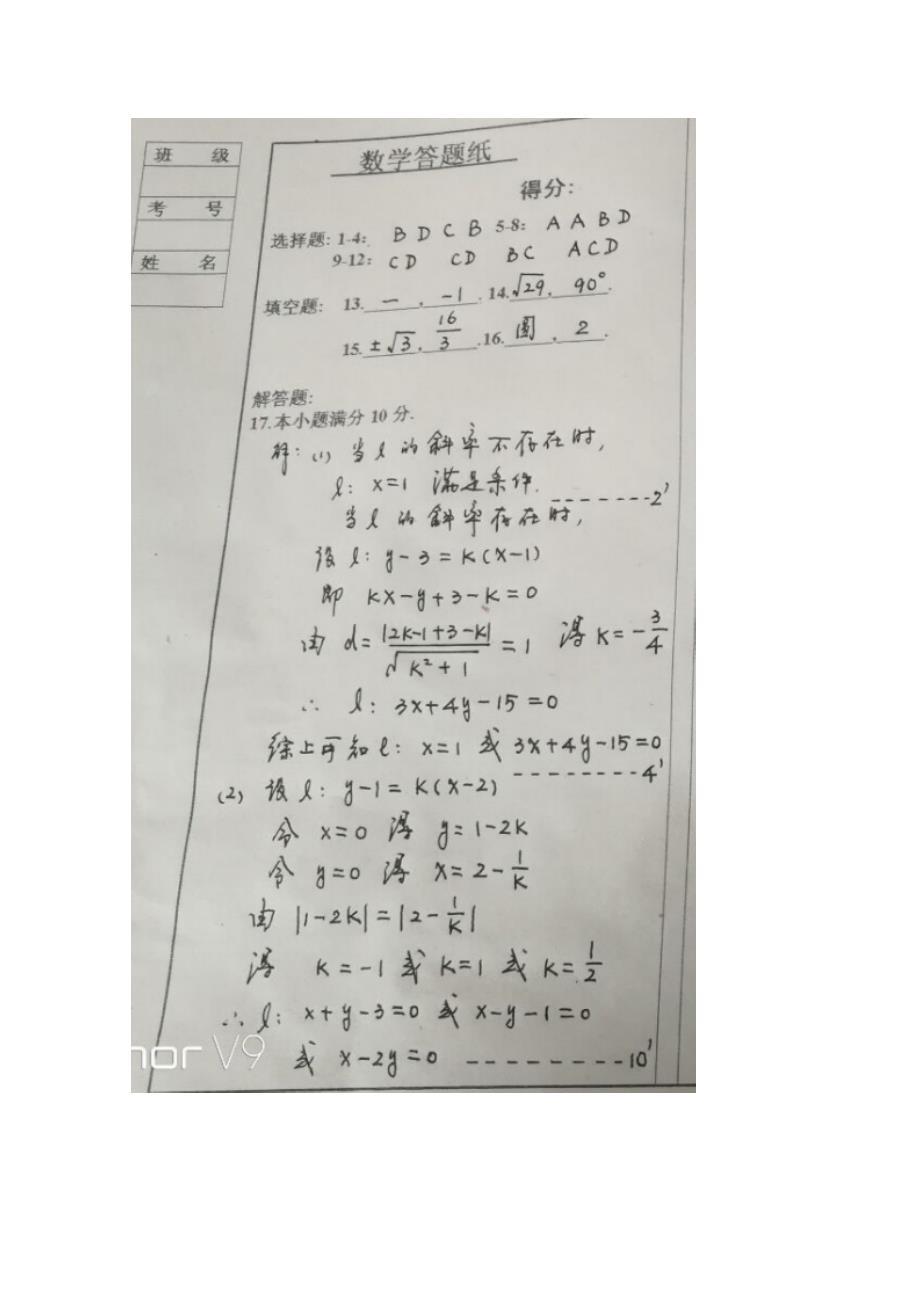 班 级
考 号
姓 名
数学答题纸
得分:
选择题: 1-4: B D C B 5-8: A A B D
9-12: CD CD BC ACD
填空题: 13. 一 , -1 . 14. √29 , 90° .
15. ±√3 , 16/3 . 16. 圆 , 2 .
解答题:
17.本小题满分 10 分.
解: (1) 当 l 的斜率不存在时,
l: x=1 满足条件. -------2'
当 l 的斜率存在时,
设 l: y-3=k(x-1)
即 kx-y+3-k=0
由 d= |2k-1+3-k| / √(k²+1) = 1 得 k=-3/4
∴ l: 3x+4y-15=0
综上可知 l: x=1 或 3x+4y-15=0
--------4'
(2) 设 l: y-1=k(x-2)
令 x=0 得 y=1-2k
令 y=0 得 x=2-1/k
由 |1-2k|=|2-1/k|
得 k=-1 或 k=1 或 k=1/2
∴ l: x+y-3=0 或 x-y-1=0
或 x-2y=0 --------10'
nor V9